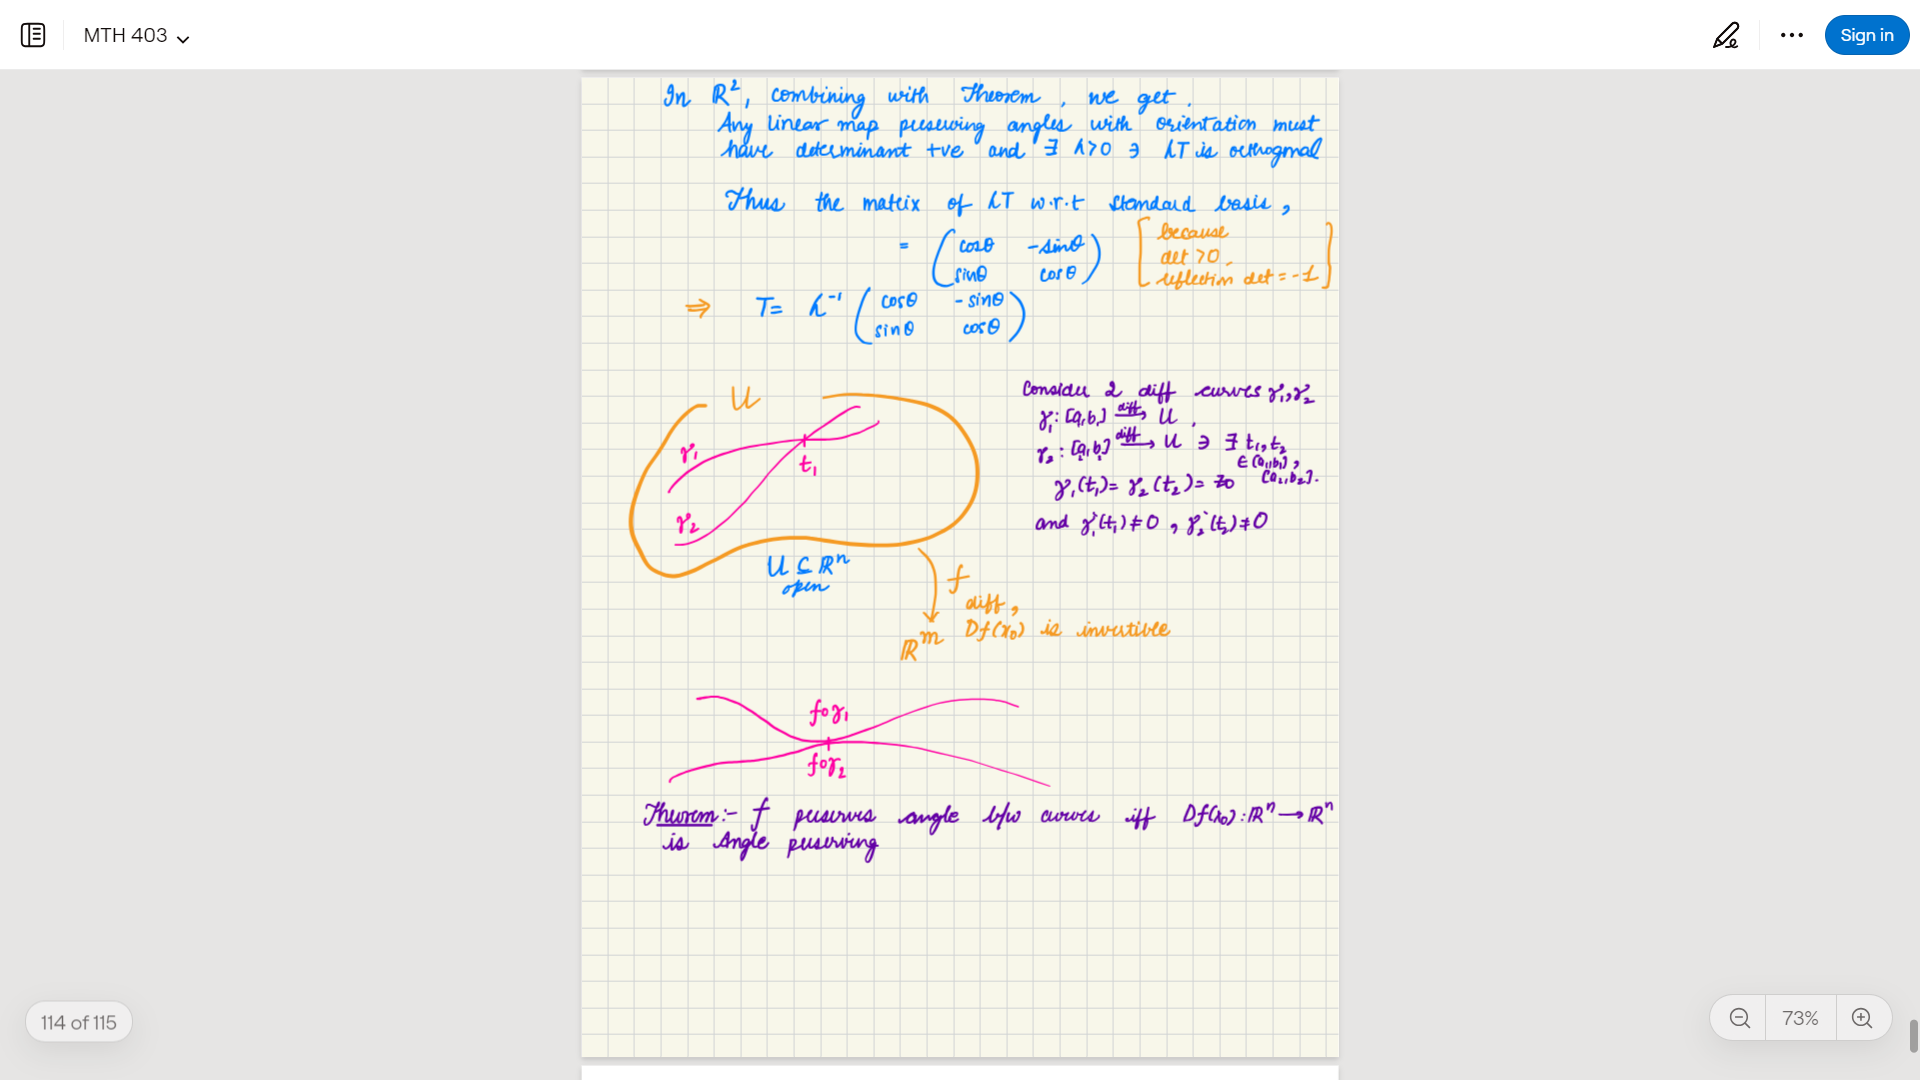 MTH 403
Sign in
In ℝ², combining with Theorem, we get.
Any linear map preserving angles with orientation must
have determinant +ve and ∃ λ>0 ∋ λT is orthogonal
Thus the matrix of λT w.r.t standard basis,
= ( cosθ -sinθ
sinθ cosθ )
[ because
det >0,
reflection det = -1 ]
⇒ T = λ⁻¹ ( cosθ -sinθ
sinθ cosθ )
U
γ₁
t₁
γ₂
U ⊆ ℝⁿ
open
Consider 2 diff curves γ₁,γ₂
γ₁ : [a,b,] diff→ U,
γ₂ : [a₂,b₂] diff→ U ∋ ∃ t₁,t₂
∈ [a₁,b₁],
[a₂,b₂].
γ₁(t₁) = γ₂(t₂) = z₀
and γ₁'(t₁) ≠ 0, γ₂'(t₂) ≠ 0
f
diff,
Df(x₀) is invertible
ℝᵐ
foγ₁
foγ₂
Theorem:- f preserves angle b/w curves iff Df(x₀) : ℝⁿ → ℝⁿ
is Angle preserving
114 of 115
73%